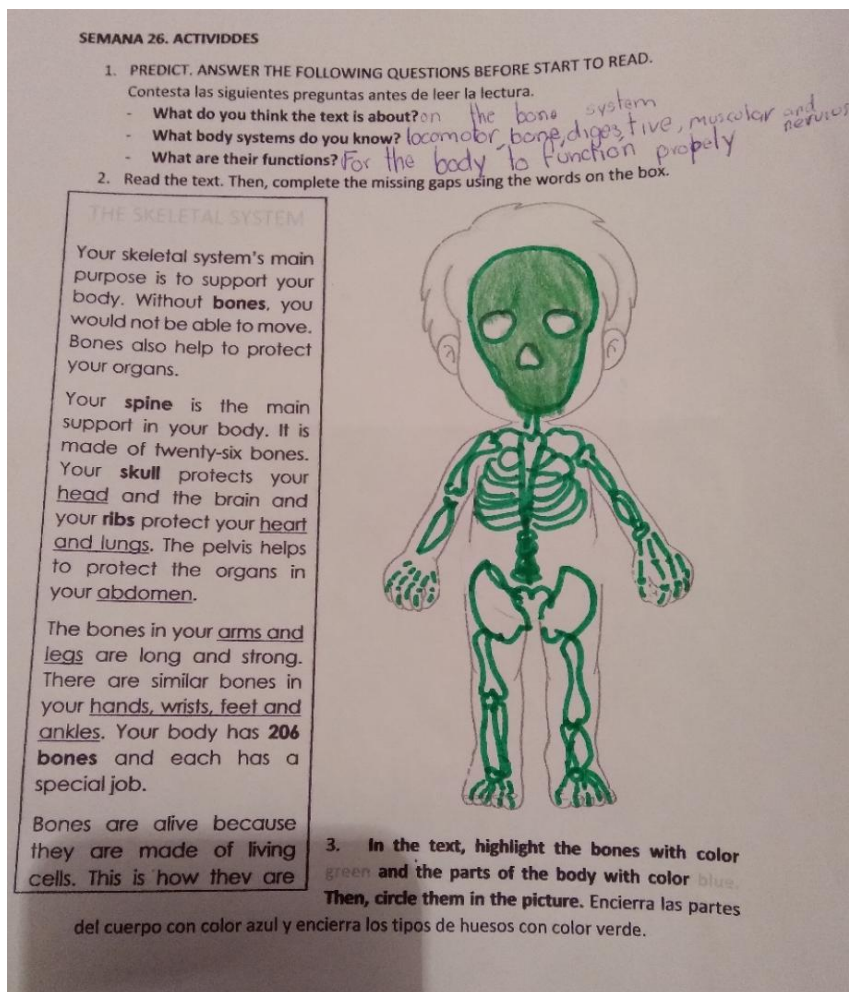 SEMANA 26. ACTIVIDDES
1. PREDICT. ANSWER THE FOLLOWING QUESTIONS BEFORE START TO READ.
Contesta las siguientes preguntas antes de leer la lectura.
- What do you think the text is about? on the bone system
- What body systems do you know? locomotor, bone, digestive, muscular and nervius
- What are their functions? For the body to function propely
2. Read the text. Then, complete the missing gaps using the words on the box.
THE SKELETAL SYSTEM
Your skeletal system's main
purpose is to support your
body. Without bones, you
would not be able to move.
Bones also help to protect
your organs.
Your spine is the main
support in your body. It is
made of twenty-six bones.
Your skull protects your
head and the brain and
your ribs protect your heart
and lungs. The pelvis helps
to protect the organs in
your abdomen.
The bones in your arms and
legs are long and strong.
There are similar bones in
your hands, wrists, feet and
ankles. Your body has 206
bones and each has a
special job.
Bones are alive because
they are made of living
cells. This is how they are
3. In the text, highlight the bones with color
green and the parts of the body with color blue.
Then, circle them in the picture. Encierra las partes
del cuerpo con color azul y encierra los tipos de huesos con color verde.